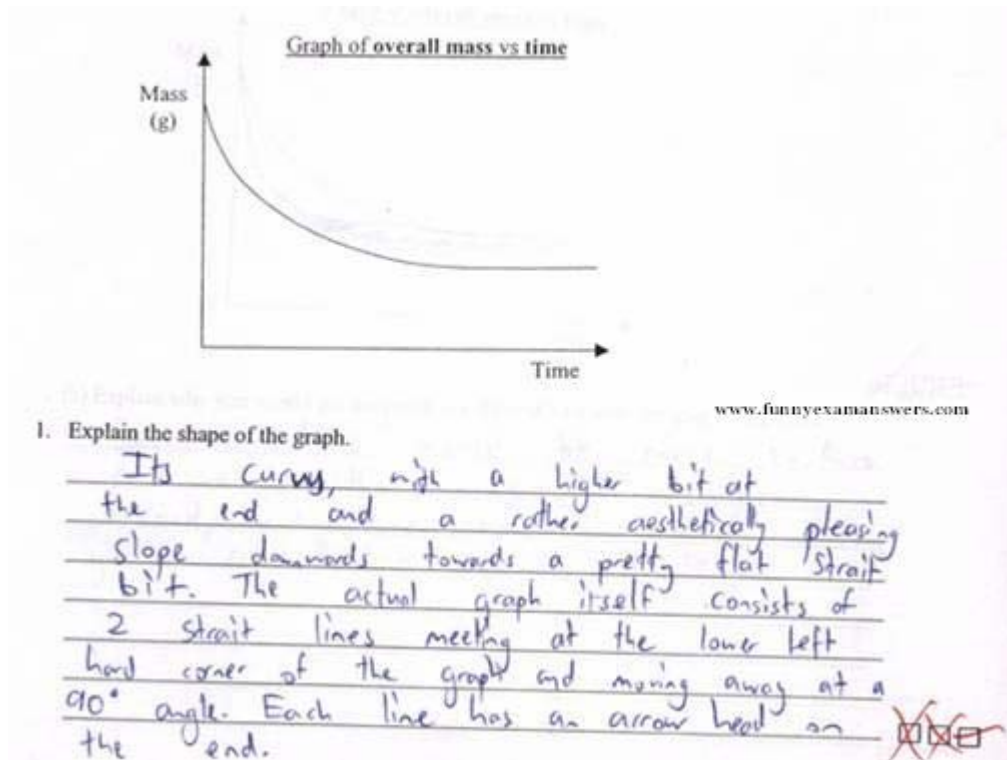 Graph of overall mass vs time
Mass
(g)
Time
www.funnyexamanswers.com
1. Explain the shape of the graph.
Its curvy, with a higher bit at
the end and a rather aesthetically pleasing
slope downwards towards a pretty flat strait
bit. The actual graph itself consists of
2 strait lines meeting at the lower left
hand corner of the graph and moving away at a
90° angle. Each line has an arrow head on
the end.